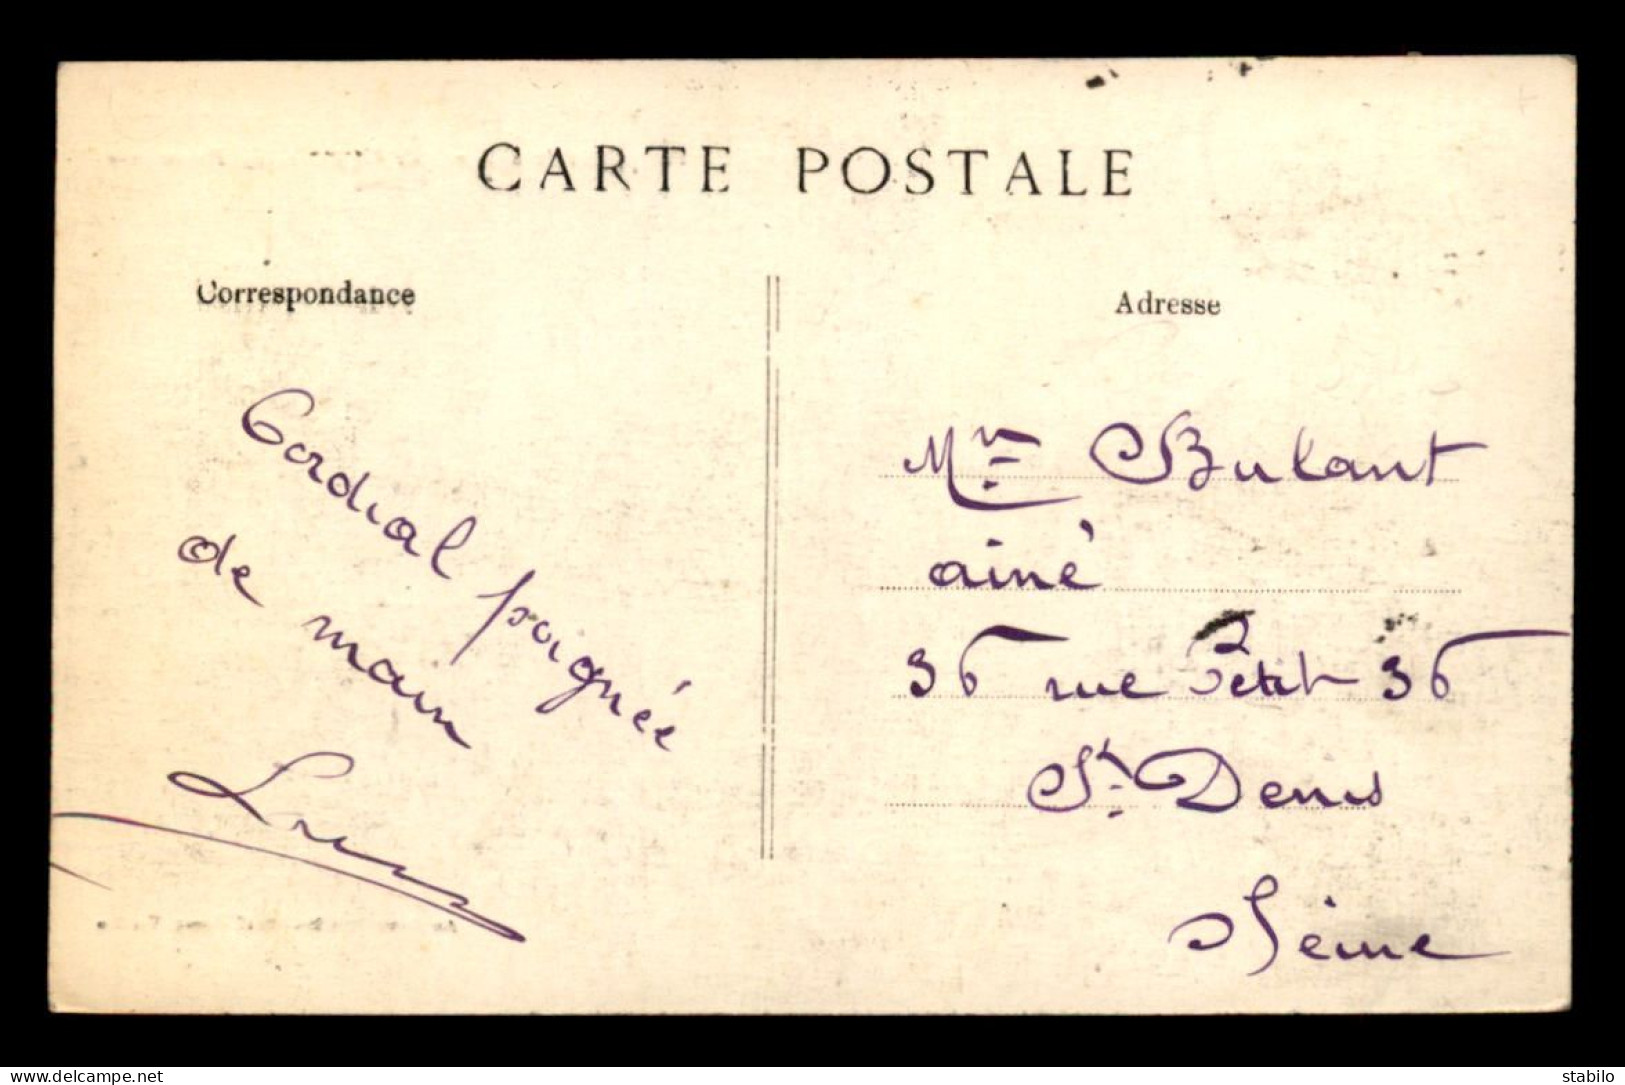 CARTE POSTALE
Correspondance
Cordial poignée
de main
Adresse
Mr Bulant
ainé
36 rue Petit 36
St Denis
Seine
www.delcampe.net
stabilo